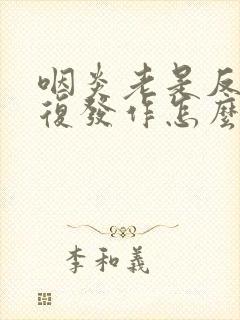 咽炎老是反
復發作怎麽
李和義